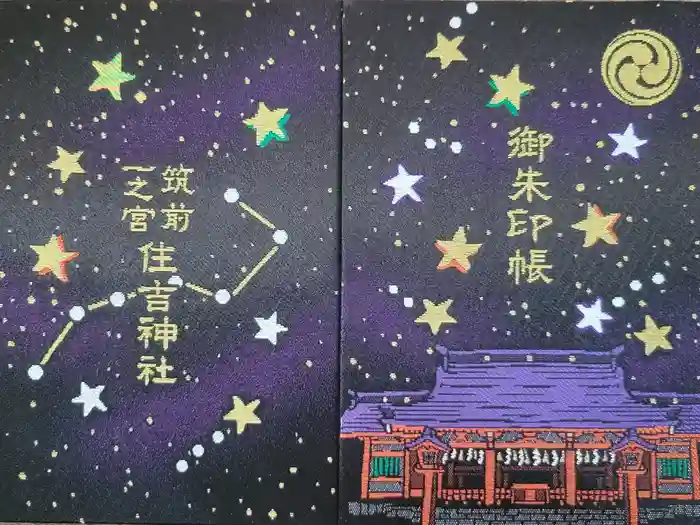 筑前
一之宮
住吉神社
御朱印帳